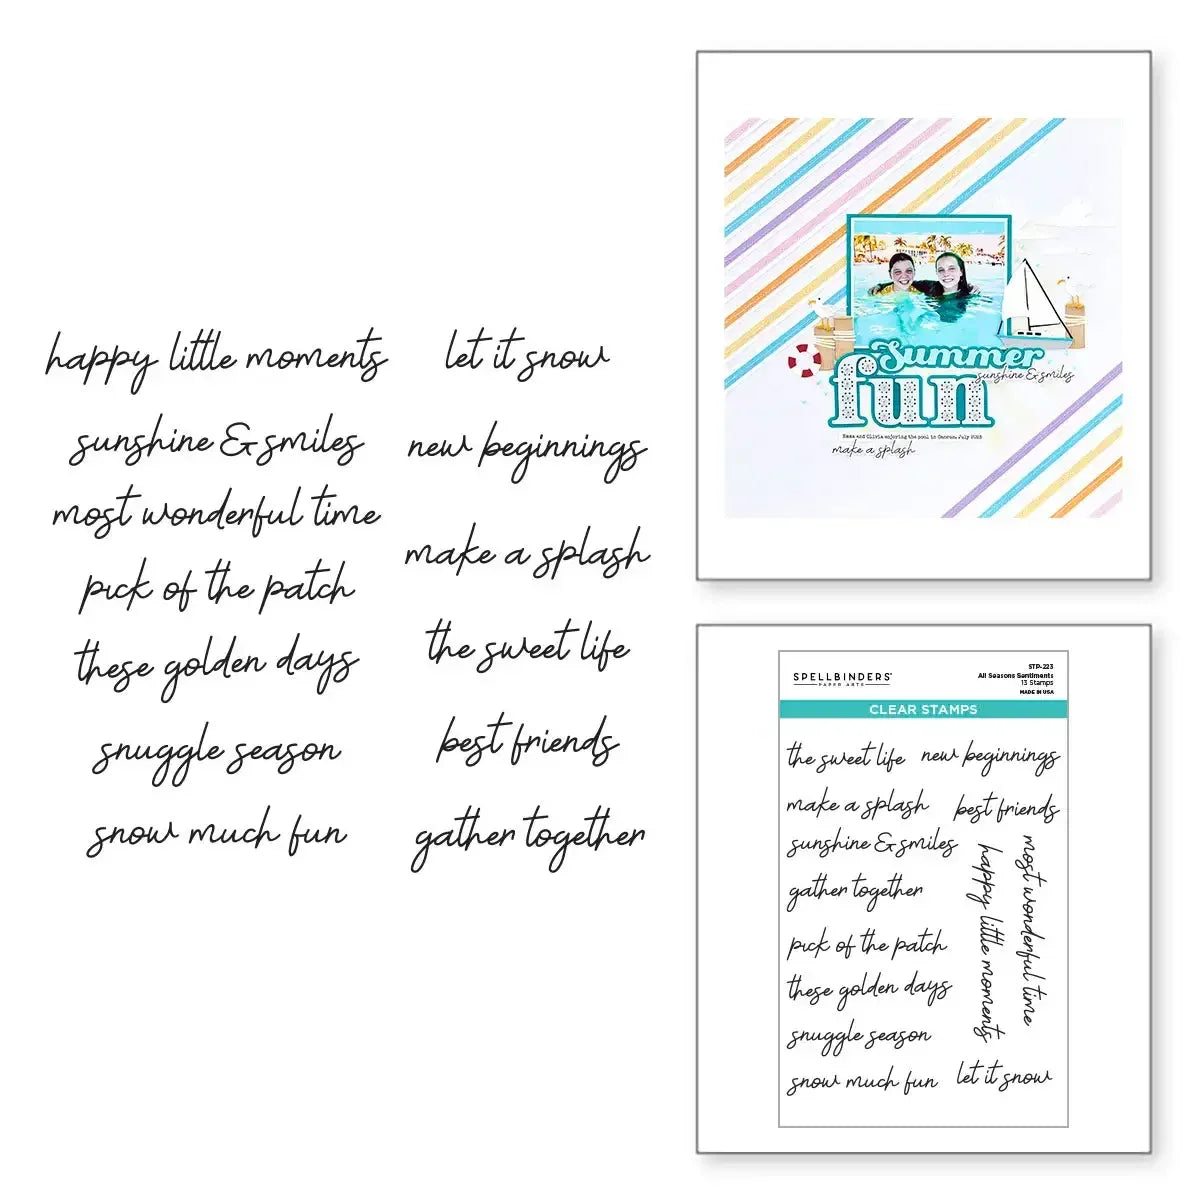 happy little moments
sunshine & smiles
most wonderful time
pick of the patch
these golden days
snuggle season
snow much fun
let it snow
new beginnings
make a splash
the sweet life
best friends
gather together
Summer
fun
sunshine & smiles
Emma and Olivia enjoying the pool in Cancun, July 2023
make a splash
SPELLBINDERS®
PAPER ARTS
STP-223
All Seasons Sentiments
13 Stamps
MADE IN USA
CLEAR STAMPS
the sweet life
new beginnings
make a splash
best friends
sunshine & smiles
gather together
pick of the patch
these golden days
snuggle season
snow much fun
happy little moments
most wonderful time
let it snow